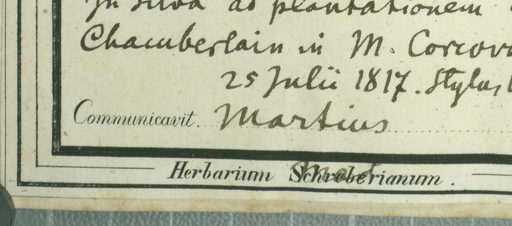 In silva ad plantationem
Chamberlain in M. Corcova
25 Julii 1817. Stylus
Communicavit. Martius
Herbarium Schreberianum.